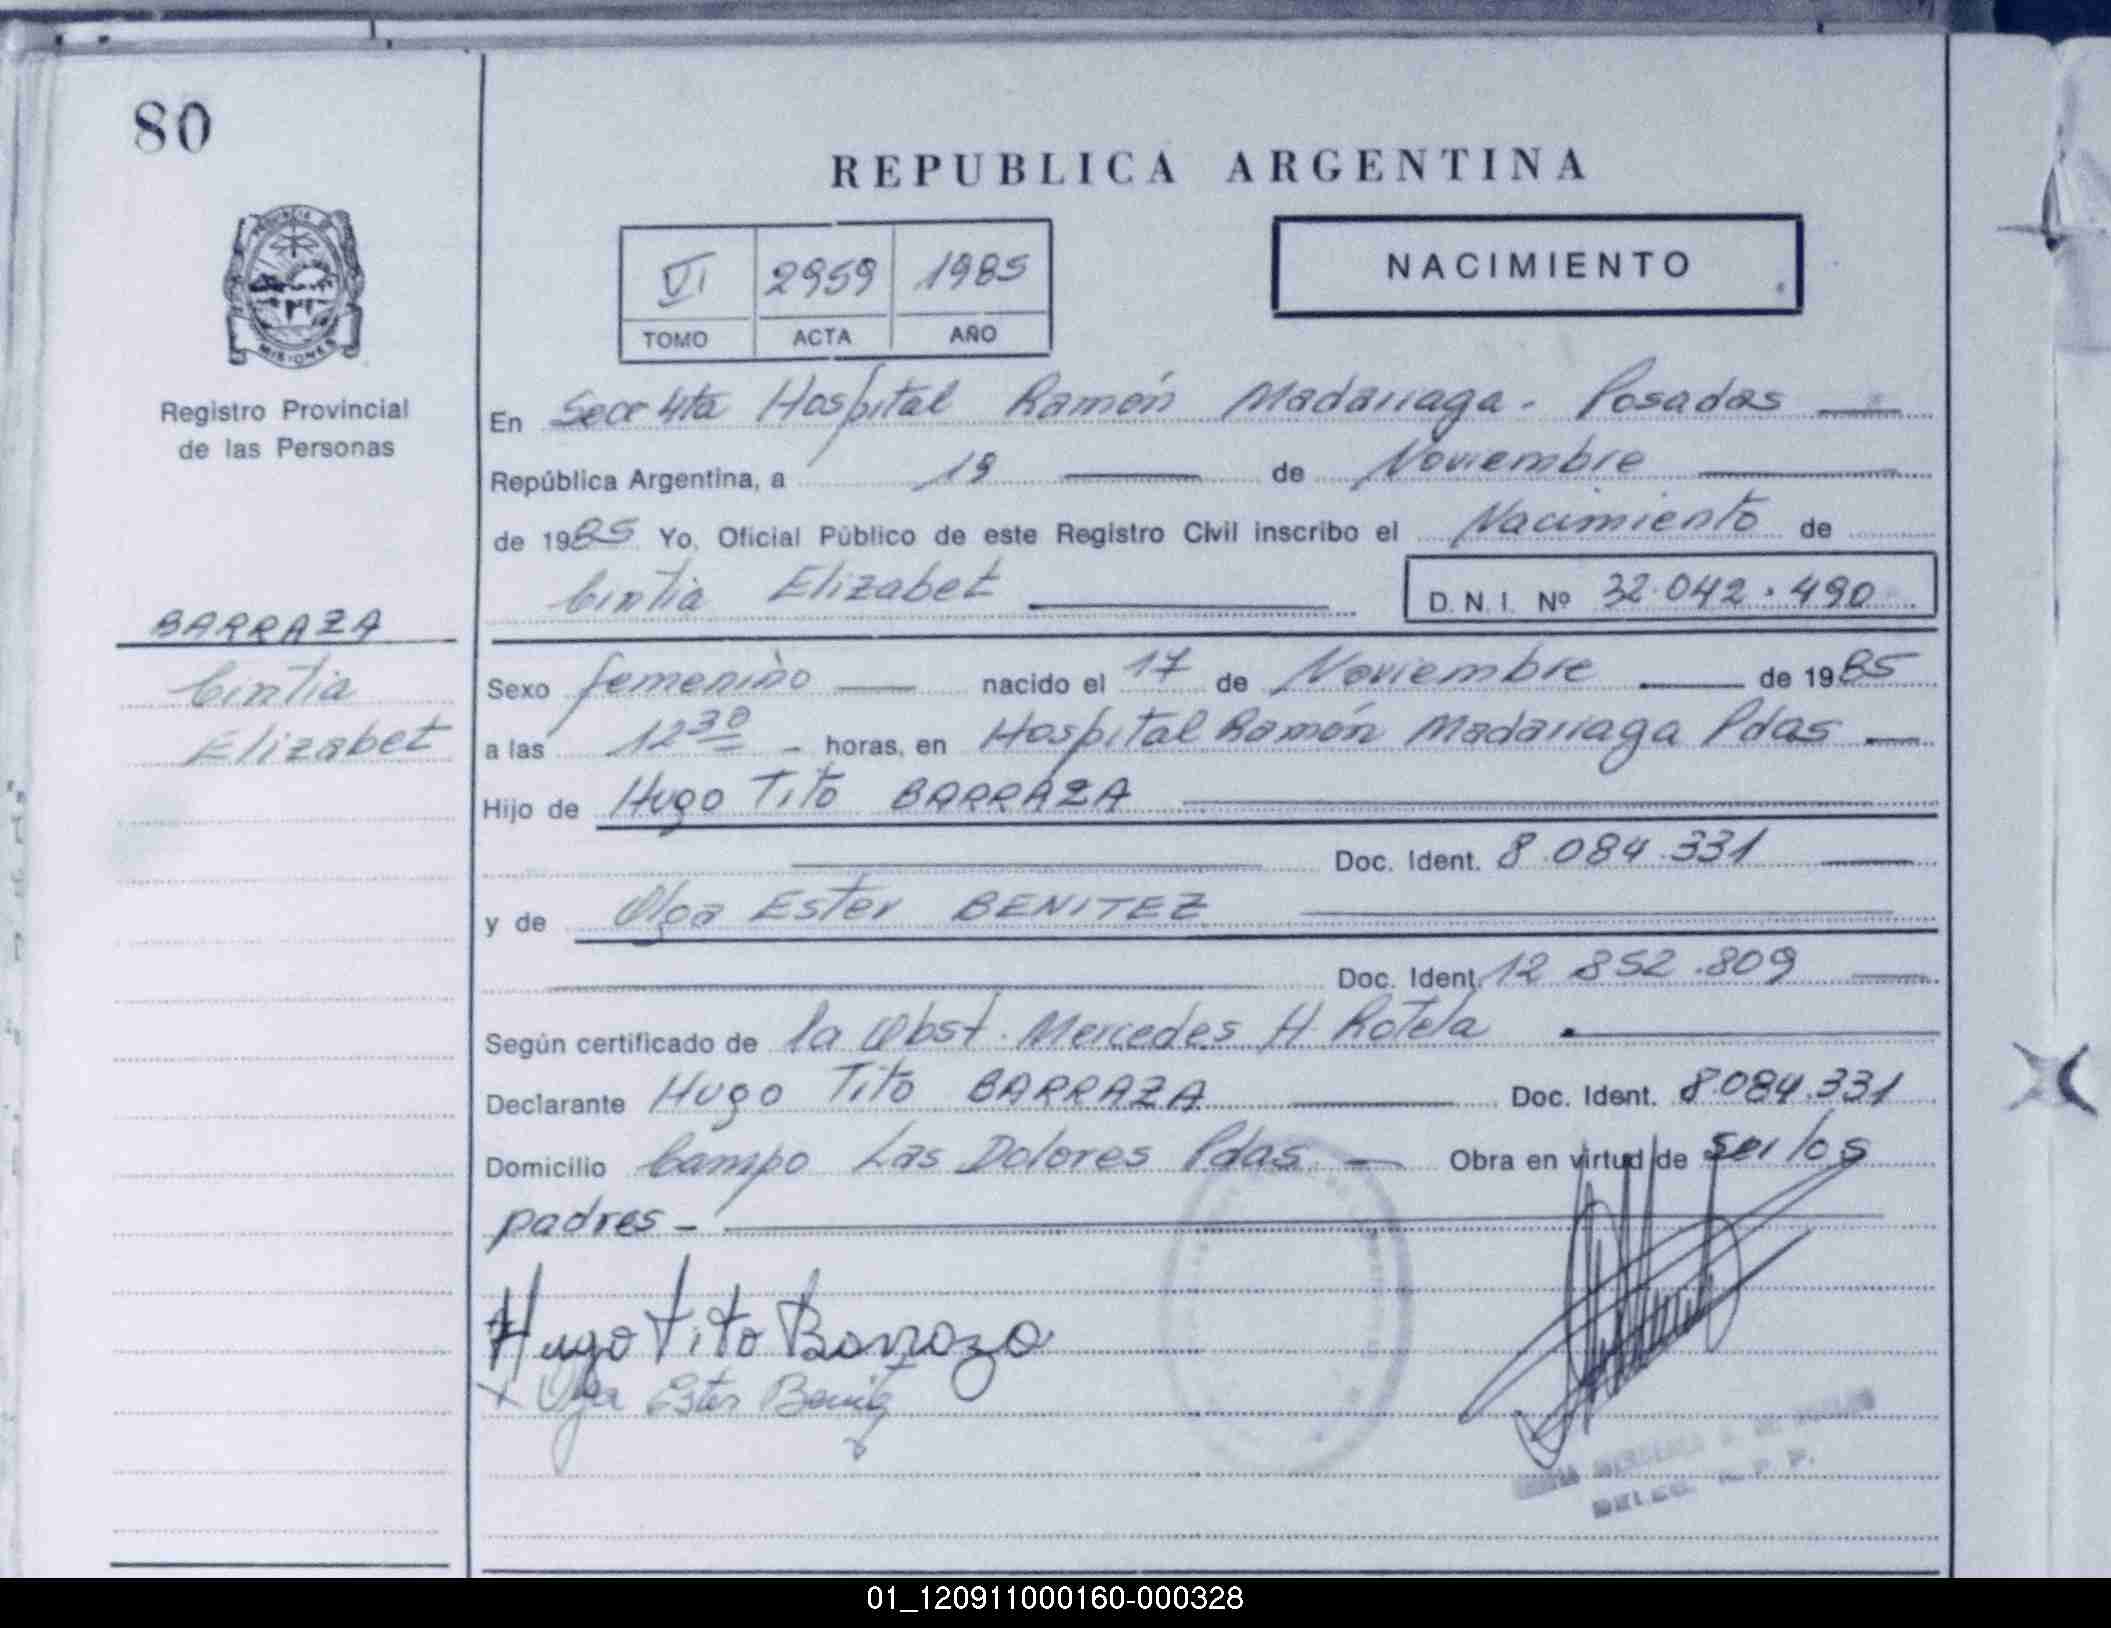 80
REPUBLICA ARGENTINA
VI 2959 1985
TOMO ACTA AÑO
NACIMIENTO
MISIONES
Registro Provincial
de las Personas
BARRAZA
Cintia
Elizabet
En Secc 4ta Hospital Ramón Madariaga - Posadas
República Argentina, a 19 de Noviembre
de 1985 Yo, Oficial Público de este Registro Civil inscribo el Nacimiento de
Cintia Elizabet D.N.I. Nº 32.042.490
Sexo femenino nacido el 17 de Noviembre de 1985
a las 12 30 - horas, en Hospital Ramón Madariaga Pdas
Hijo de Hugo Tito BARRAZA
Doc. Ident. 8.084.331
y de Olga Ester BENITEZ
Doc. Ident. 12 852.809
Según certificado de la Obst. Mercedes H. Rotela
Declarante Hugo Tito BARRAZA Doc. Ident. 8.084.331
Domicilio Campo Las Dolores Pdas. Obra en virtud de ser los
padres -
Hugo Tito Barraza
x Olga Ester Benitez
DELEG. R. P. P.
01_120911000160-000328